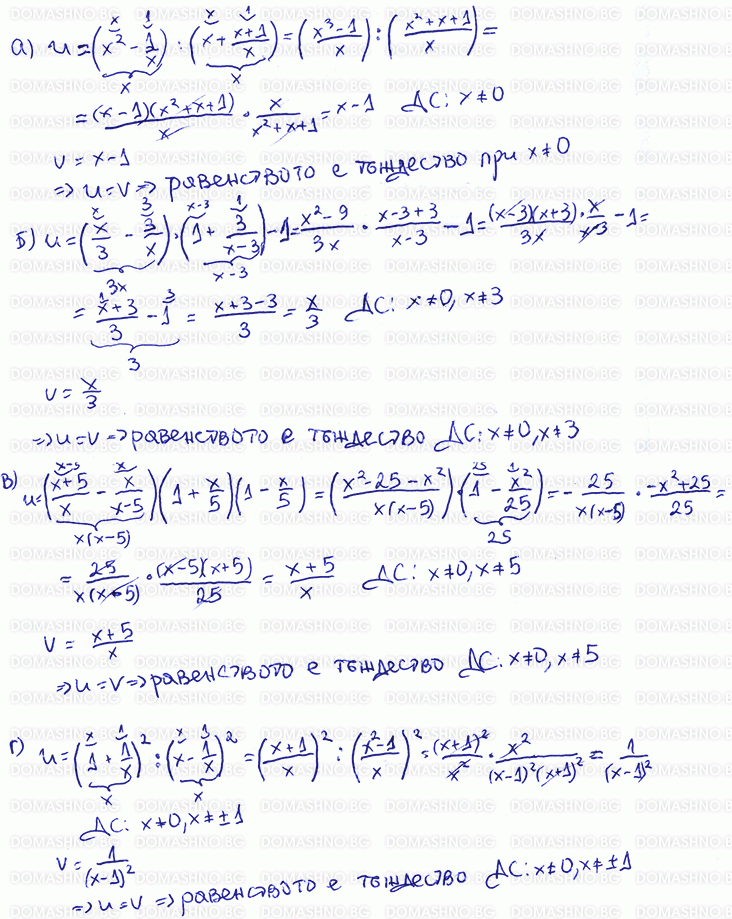 а) u = (x² - 1/x) : (x + (x+1)/x) = ((x³-1)/x) : ((x²+x+1)/x) =
= (x-1)(x²+x+1)/x · x/(x²+x+1) = x-1 ДС: x≠0
v = x-1
=> u=v => равенството е тъждество при x≠0
Б) u = (x/3 - 3/x) · (1 + 3/(x-3)) - 1 = (x²-9)/3x · (x-3+3)/(x-3) - 1 = (x-3)(x+3)/3x · x/(x-3) - 1 =
= (x+3)/3 - 1 = (x+3-3)/3 = x/3 ДС: x≠0, x≠3
v = x/3
=> u=v => равенството е тъждество ДС: x≠0, x≠3
в) u = ((x+5)/x - x/(x-5)) (1 + x/5)(1 - x/5) = ((x²-25-x²)/x(x-5)) · (1 - x²/25) = - 25/x(x-5) · (-x²+25)/25 =
= 25/x(x-5) · (x-5)(x+5)/25 = (x+5)/x ДС: x≠0, x≠5
v = (x+5)/x
=> u=v => равенството е тъждество ДС: x≠0, x≠5
г) u = (1 + 1/x)² : (x - 1/x)² = ((x+1)/x)² : ((x²-1)/x)² = (x+1)²/x² · x²/(x-1)²(x+1)² = 1/(x-1)²
ДС: x≠0, x≠±1
v = 1/(x-1)²
=> u=v => равенството е тъждество ДС: x≠0, x≠±1
DOMASHNO.BG